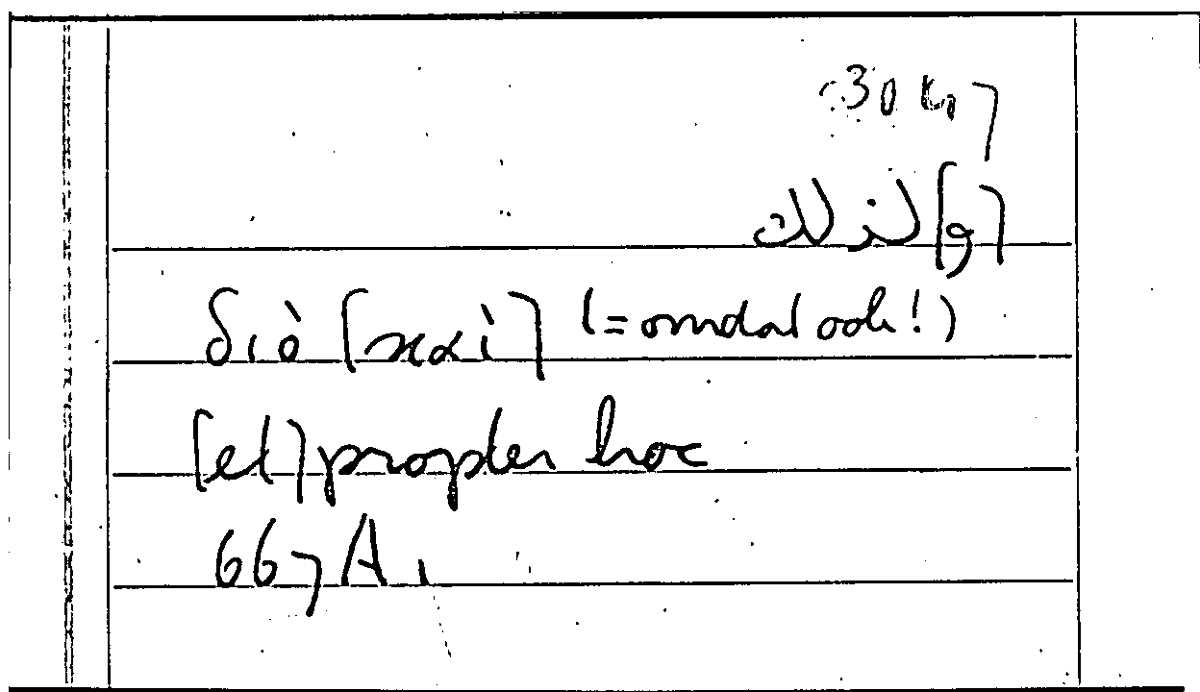 [و]لذلك
διὸ [καὶ] (=omdat ook!)
[et] propter hoc
667 A 1